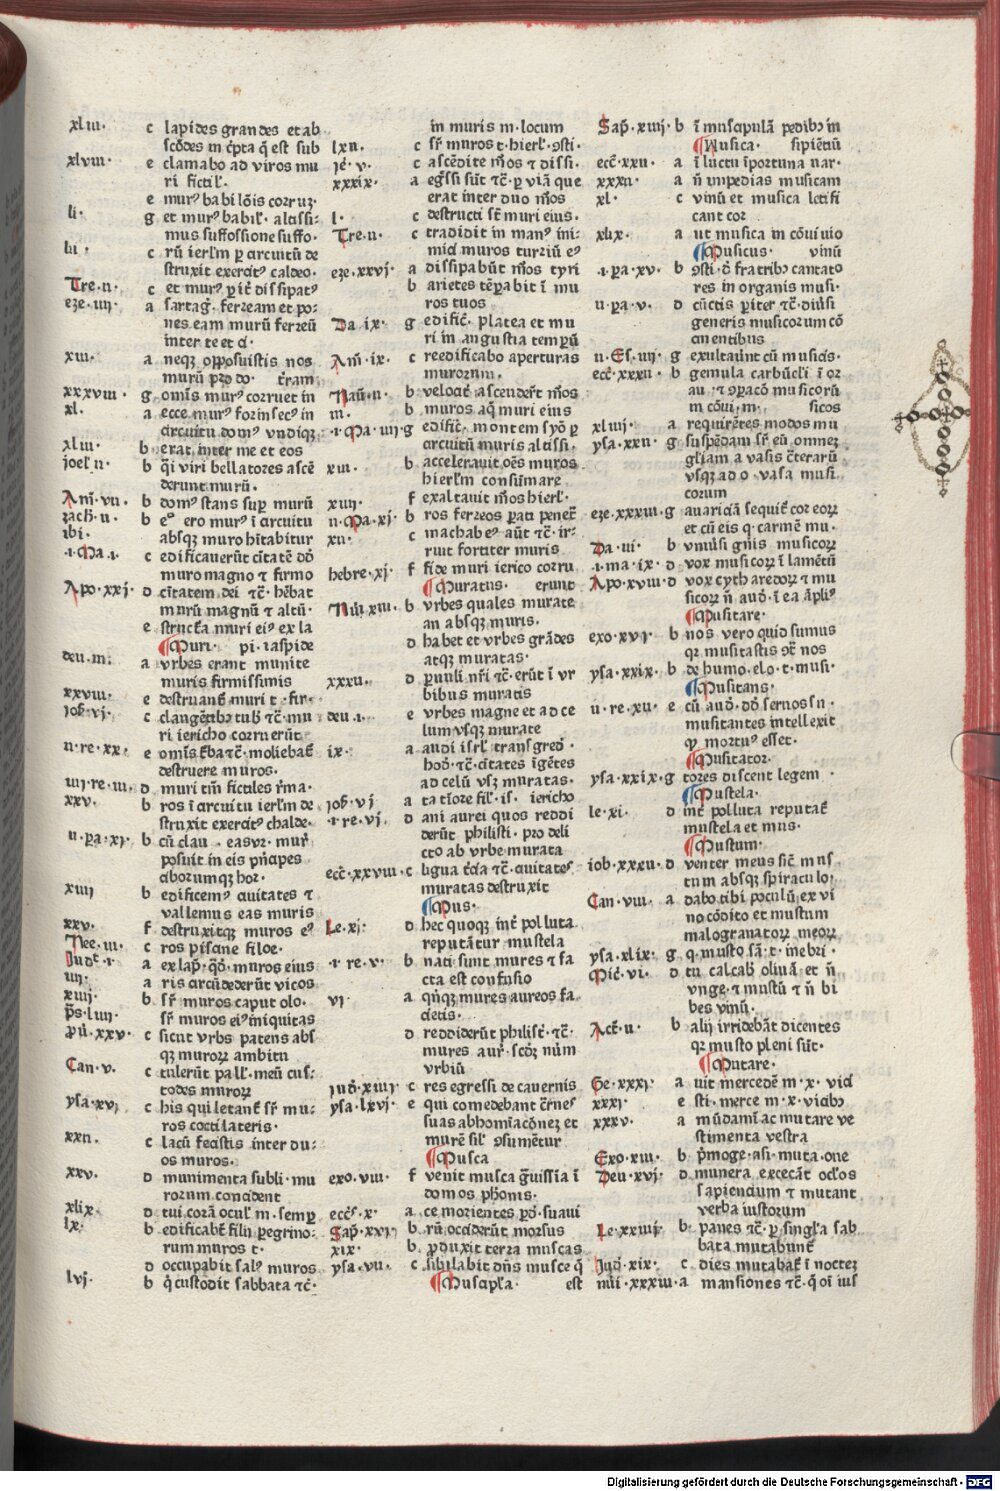 xliii· c lapides grandes et ab
scōdes in cͥpta q̄ est sub
xlviii· e clamabo ad viros mu
ri fictil'·
e mur⁹ babilōis corruꝫ·
li· g et mur⁹ babil'· altissi:
mus suffossione suffo·
lii· c rū ierl'm ꝑ arcuitū de
struxit exercit⁹ caldeo·
Tre·ii· c et mur⁹ ꝑit͛ dissipat⁹
eze·iiij· a sartag̅· ferream et po:
nes eam murū ferreū
inter te et ci·
xiii· a neqꝫ opposuistis nos
murū pro do· tͥram
xxxviii· g omīs mur⁹ corruet in
xl· a ecce mur⁹ forinsec⁹ in
circuitu dom⁹ vndiqꝫ
xliii· b erat inter me et eos
joel' ii· b q̄i viri bellatores ascē
derunt murū·
Am̄· vii· b dom⁹ stans sup̱ murū
zach· ii· b eº ero mur⁹ ī arcuitu
ibi· absqꝫ muro hītabitur
·i·Ma·i· c edificauerūt citatē dō
muro magno ⁊ firmo
Apo·xxj· d citatem dei tc̄· hēbat
murū magnū ⁊ altū·
e structͣa muri ei⁹ ex la
Muri· pi·iaspide
deu·iii· a vrbes erant munite
muris firmissimis
xxviii· e destruent muri t·fir·
job·vj· c clangētibꝫ tub' tc̄·mu
ri iericho corruerūt
ii·re·xx· e omīs tc̄·moliebat͛
destruere muros·
iiij·re·iii· d muri tm̄ fictiles rͥma·
xxv· b ros ī arcuitu ierl'm de
struxit exercit⁹ chalde·
ii·pa·xj· b cū clau · easqꝫ·mur'
posuit in eis pͥncipes
ciborumqꝫ hor·
xiiij b edificem⁹ ciuitates ⁊
vallemus eas muris
xxv· f destruxitqꝫ muros e⁹
Nee·iii· c ros piscine siloe·
Judt̄·i· a ex lap̄·qd̄·muros eius
iiij· a ris arcūdederūt vicos
xiiij· b sr̄ muros caput olo·
p̄s·liiij· sr̄ muros ei⁹ iniquitas
ꝓū·xxv· c sicut vrbs patens abs
qꝫ muroꝝ ambitu
Can·v· c tulerūt pall'·meū cus:
todes muroꝝ
ysa·xvj c his qui letant͛ sr̄ mu:
ros coctilateris·
xxii· c lacū fecistis inter du:
os muros·
xxv· d munimenta subli·mu
rorum concident
xlix· d tui corā ocul' m·semp̱
lx· b edificabt̄ filij peregrino:
rum muros t·
d occupabit sal⁹ muros
lvj· b q̄ custodit sabbata tc̄·
in muris m·locum
lxii· c sr̄ muros t·hierl'·ꝯsti·
je͛·v· c ascēdite m̄os ⁊ dissi·
xxxix· a eg̅ssi sūt tc̄·ꝑ viā que
erat inter duo m̄os
l· c destructi st̄ muri eius·
Tre·ii· c tradidit in man⁹ ini:
mici muros turriū e⁹
eze·xxvj· a dissipabūt m̄os tyri
b arietes tēꝑabit ī mu
ros tuos
Da·ix· g edific̄· platea et mu
ri in angustia tempū
Am̄·ix· c reedificabo aperturas
murorum·
Naū·ii· b velocit̄ ascendert̄ m̄os
iii· b muros aq̄ muri eius
·i·Ma·iiij·g edific̄· montem syō ꝑ
arcuitū muris altissi·
xiii· b accelerauit oēs muros
hierl'm consūmare
xiiij· f exaltauit m̄os hierl'·
ii·Ma·xj· b ros ferreos ꝑati penet͛
xii· c machabe⁹ aūt tc̄·ir:
ruit fortiter muris
hebre·xj· f fide muri ierico corru
Muratus· erunt
Nūi·xiii· b vrbes quales murate
an absqꝫ muris·
d habet et vrbes grādes
atqꝫ muratas·
xxxii· d ꝑuuli nr̄i tc̄·erūt ī vr
bibus muratis
deu·i· e vrbes magne et ad ce
lum vsqꝫ murate
ix· a audi isrl' transgred̄·
hod̄·tc̄·citates īgētes
ad celū vsqꝫ muratas·
job·vj a ta tīore fil'·is· iericho
·i·re·vj· d ani aurei quos reddi
derūt philisti·pro deli
cto ab vrbe murata
ecc̄·xxviii·c ligua tc̄·ciuitates
muratas destruxit
Mus·
Le·xj: d hec quoqꝫ int͛ polluta
reputātur mustela
·i·re·v· b nati sunt mures ⁊ fa
cta est confusio
vj· a qn̄qꝫ mures aureos fa
cietis·
d reddiderūt philist̄·tc̄·
mures aur̄·scd̄ꝫ nūm
vrbiū
jud̄·xiiij· c res egressi de cauernis
ysa·lxvj· e qui comedebant cͥrneꝫ
suas abhomīacōneꝫ et
murē sil' ꝯsumētur
Musca
exo·viii· f venit musca gͣuissīa ī
domos ph̄onis·
ecc̄s·x· a ce morientes ꝑd̄·suaui
Sap̄·xvj· b rū occiderūt morsus
xix· b ꝓduxit terra muscas
ysa·vii· c sibilabit dn̄s musce q̄
Muscapl'a· est
Sap̄·xiiij· b ī muscapulā pedibꝫ in
Musica· sipiētiū
ecc̄·xxii· a ī luctu īportuna nar·
xxxii· a n̄ īnpedias musicam
xl· c vinū et musica letifi
cant cor
xlix· a ut musica in cōuiuio
Musicus· vinū
·i·pa·xv· b ꝯsti·d̄ fratribꝫ cantato
res in organis musi·
ii·pa·v· d cūctis ꝑiter tc̄·diūsi
generis musicorum cō
cinentibus
ii·Es·iiij· g exultauit cū musicis·
ecc̄·xxxii· b gemula carbūcl'i ī or
au·⁊ ꝯꝑacō musicorū
in cōui·m· sicos
xliiij· a requirētes modos mu
ysa·xxii· g suspēdam sr̄ eū omneꝫ
gl'iam a vasis cͥteraꝝ
vsqꝫ ad o·vasa musi
corum
eze·xxxiii·g auariciā sequit͛ cor eoꝝ
et cū eis q·carmē mu·
Da·iii· b vniūsi gn̄is musicoꝝ
·i·ma·ix· d vox musicoꝝ ī lamētū
Apo·xviii·d vox cytharedoꝝ ⁊ mu
sicoꝝ n̄ aud̄·ī ea āpli⁹
Musitare·
exo·xvj· b nos vero quid sumus
qꝛ musitastis ꝯt̄ nos
ysa·xxix· b de humo·elo·t·musi·
Musitans·
ii·re·xii· e cū aud̄·dd̄ seruos su·
musitantes intellexit
qꝫ mortu⁹ esset·
Musitator·
ysa·xxix·g tores discent legem ·
Mustela·
le·xi· d int͛ polluta reputat͛
mustela et mus·
Mustum·
iob·xxxii· d venter meus sic̄ mus
tum absqꝫ spiraculo·
Can·viii· a dabo tibi poculū ex vi
no cōdito et mustum
malogranatoꝝ meoꝝ
ysa·xlix· g q·musto sā·t·inebri·
Mic̄·vi· d tu calcab' oliuā et n̄
vnge·⁊ mustū ⁊ n̄ bi
bes vinū·
Act̄·ii· b alij irridebāt dicentes
qꝛ musto pleni sūt·
Mutare·
Ge·xxxj· a uit mercedē m·x·vici
xxxj· e sti·merce m·x·vicibꝫ
xxxv· a mūdamī ac mutare ve
stimenta vestra
Exo·xiii· b pͥmoge·asi·muta·one
Deu·xvj· d munera excecāt ocl'os
sapiencium ⁊ mutant
verba iustorum
Le·xxiiij· b panes tc̄·ꝑ singl'a sab
bata mutabunt͛
Jud̄·xix· c dies mutabat͛ ī nocteꝫ
nūi·xxxiii·a mansiones tc̄·q̄ oī ius
Digitalisierung gefördert durch die Deutsche Forschungsgemeinschaft - DFG